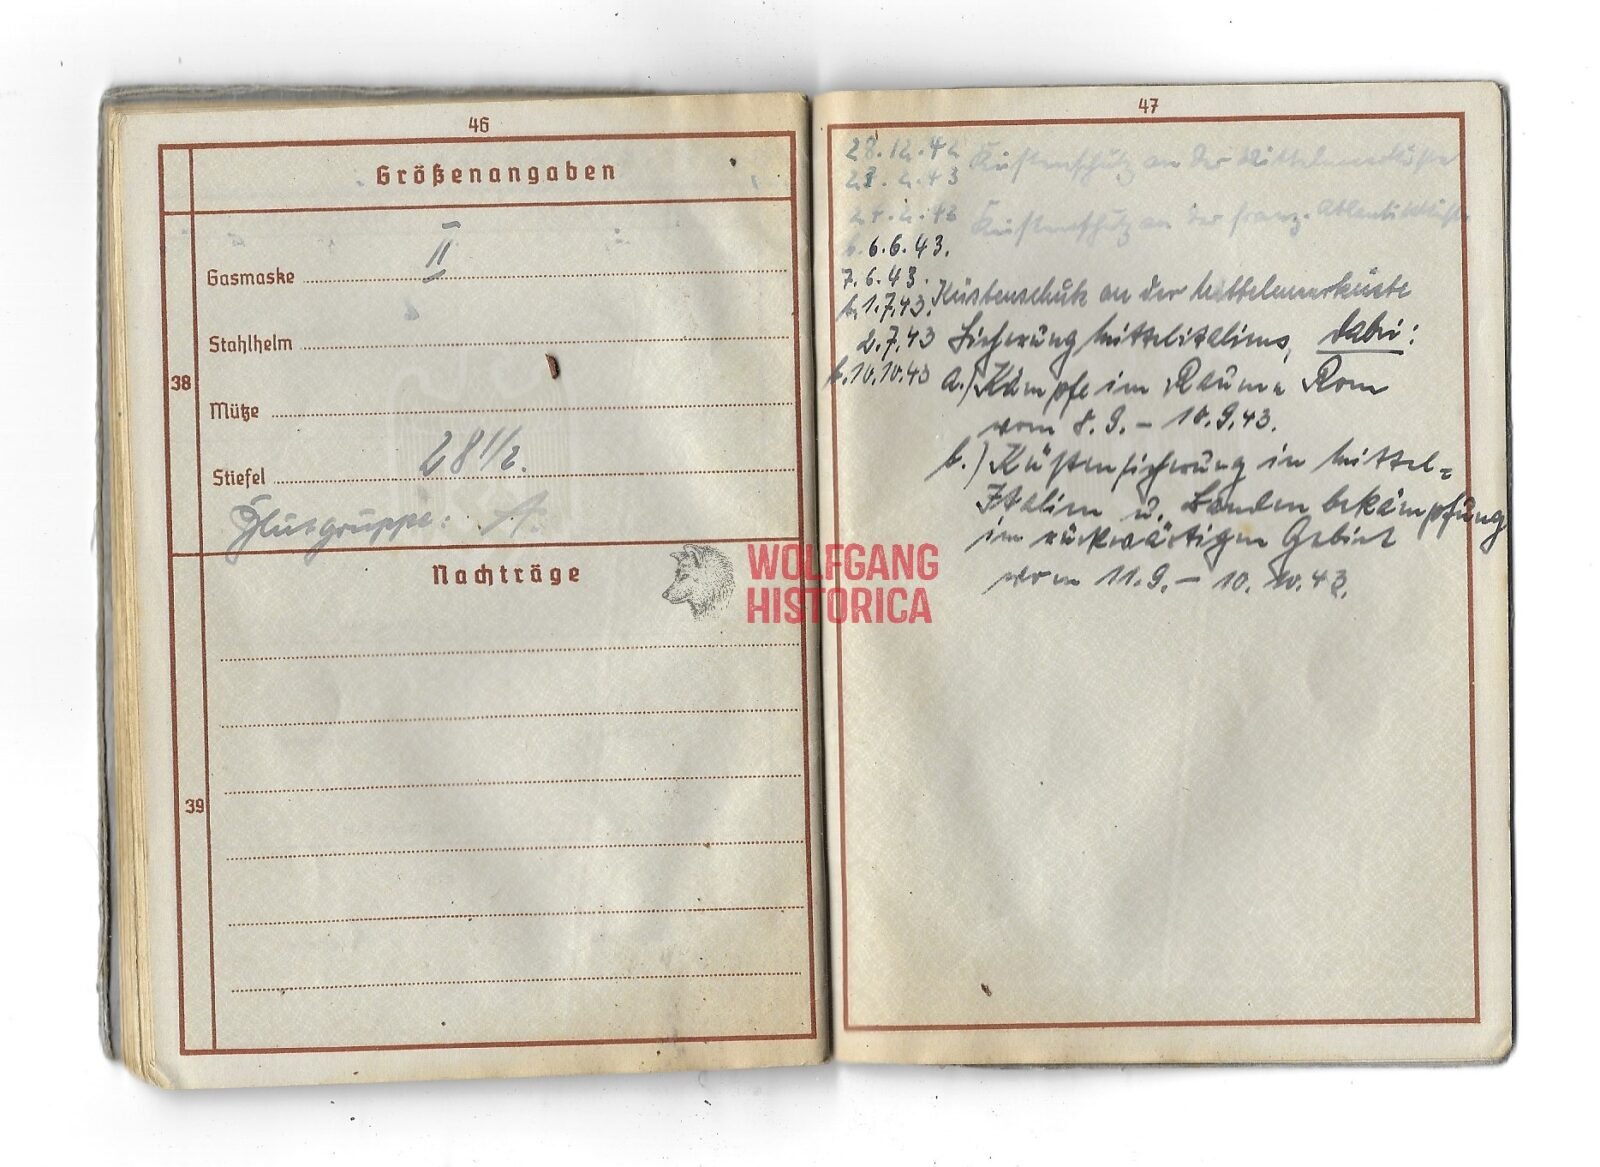 46
Größenangaben
38
Gasmaske II
Stahlhelm
Mütze
Stiefel 28 1/2.
Blutgruppe: A.
Nachträge
39
WOLFGANG
HISTORICA
47
28.12.42 Küstenschutz an der Mittelmeerküste
23.2.43
24.2.43 Küstenschutz an der franz. Atlantikküste
6.6.43.
7.6.43. Küstenschutz an der Mittelmeerküste
b. 1.7.43.
2.7.43 Sicherung Mittelitaliens, dabei:
b. 10.10.43 a.) Kämpfe im Raume Rom
vom 8.9. – 10.9.43.
b.) Küstensicherung in Mittel=
Italien u. Bandenbekämpfung
im rückwärtigen Gebiet
vom 11.9. – 10.10.43.